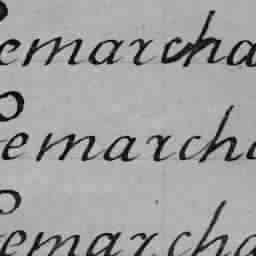 emarcha
emarcha
emarcha